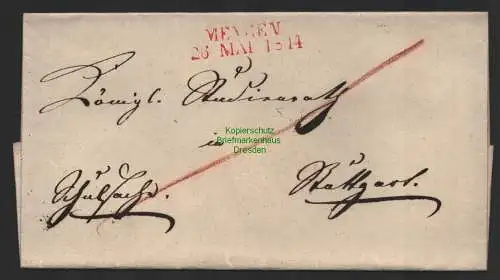 MENGEN
26 MAI 1844
Königl. Studienrath
Kopierschutz
in
Briefmarkenhaus
Dresden
Schulsache. Stuttgart.